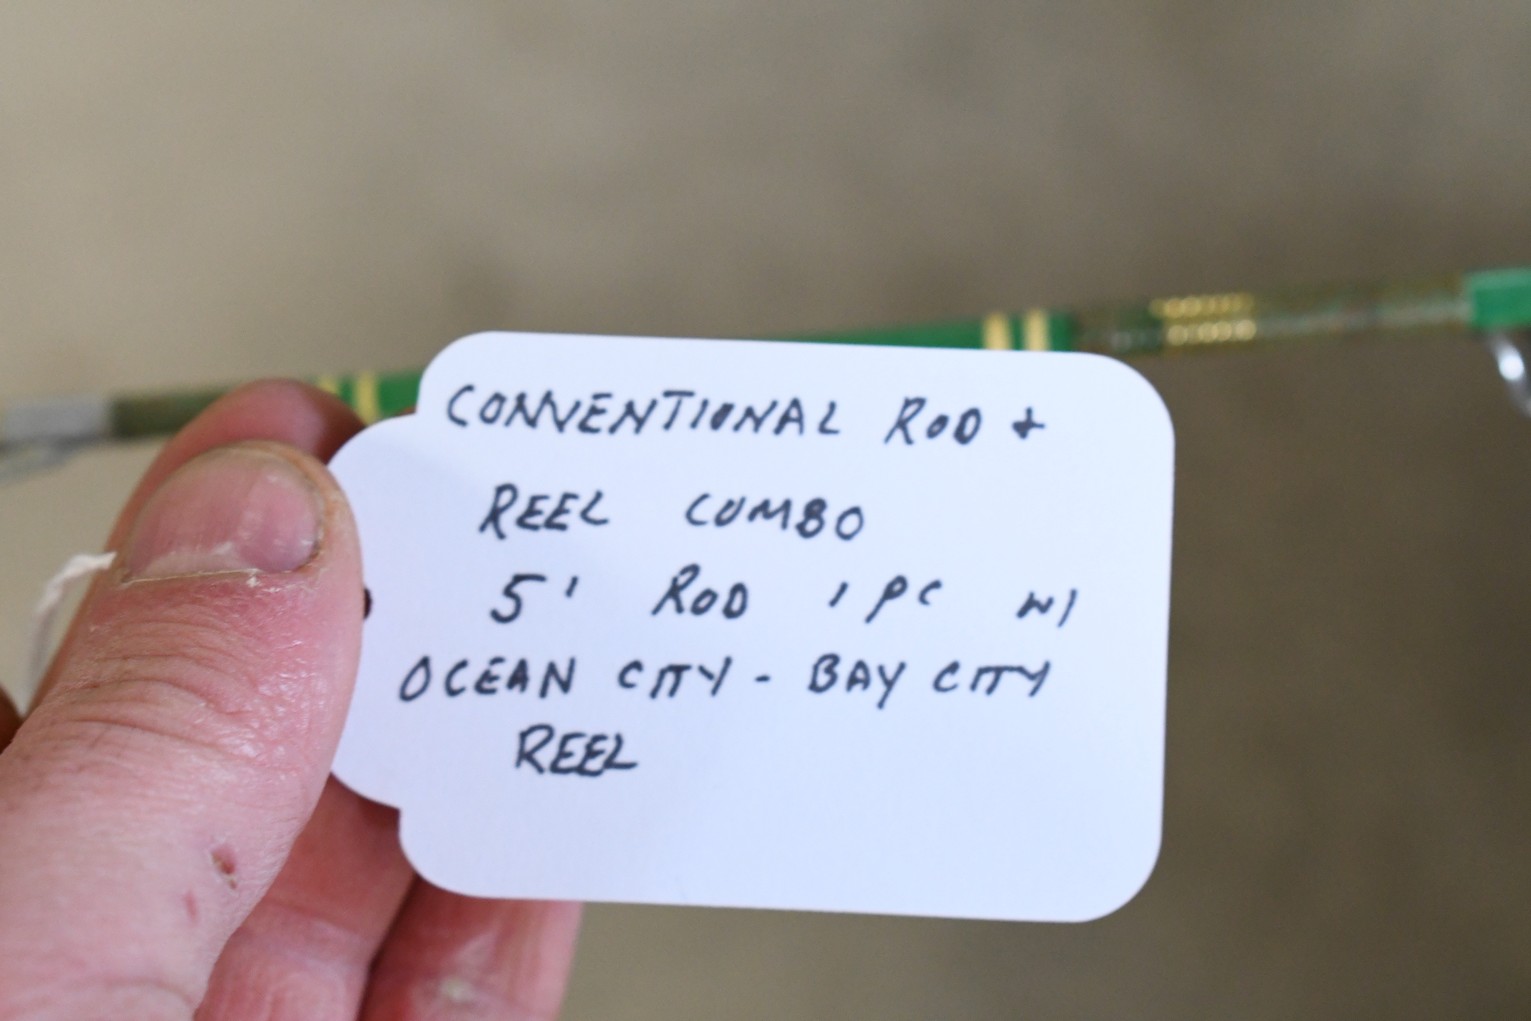 CONVENTIONAL ROD +
REEL COMBO
5' ROD 1 PC W/
OCEAN CITY - BAY CITY
REEL